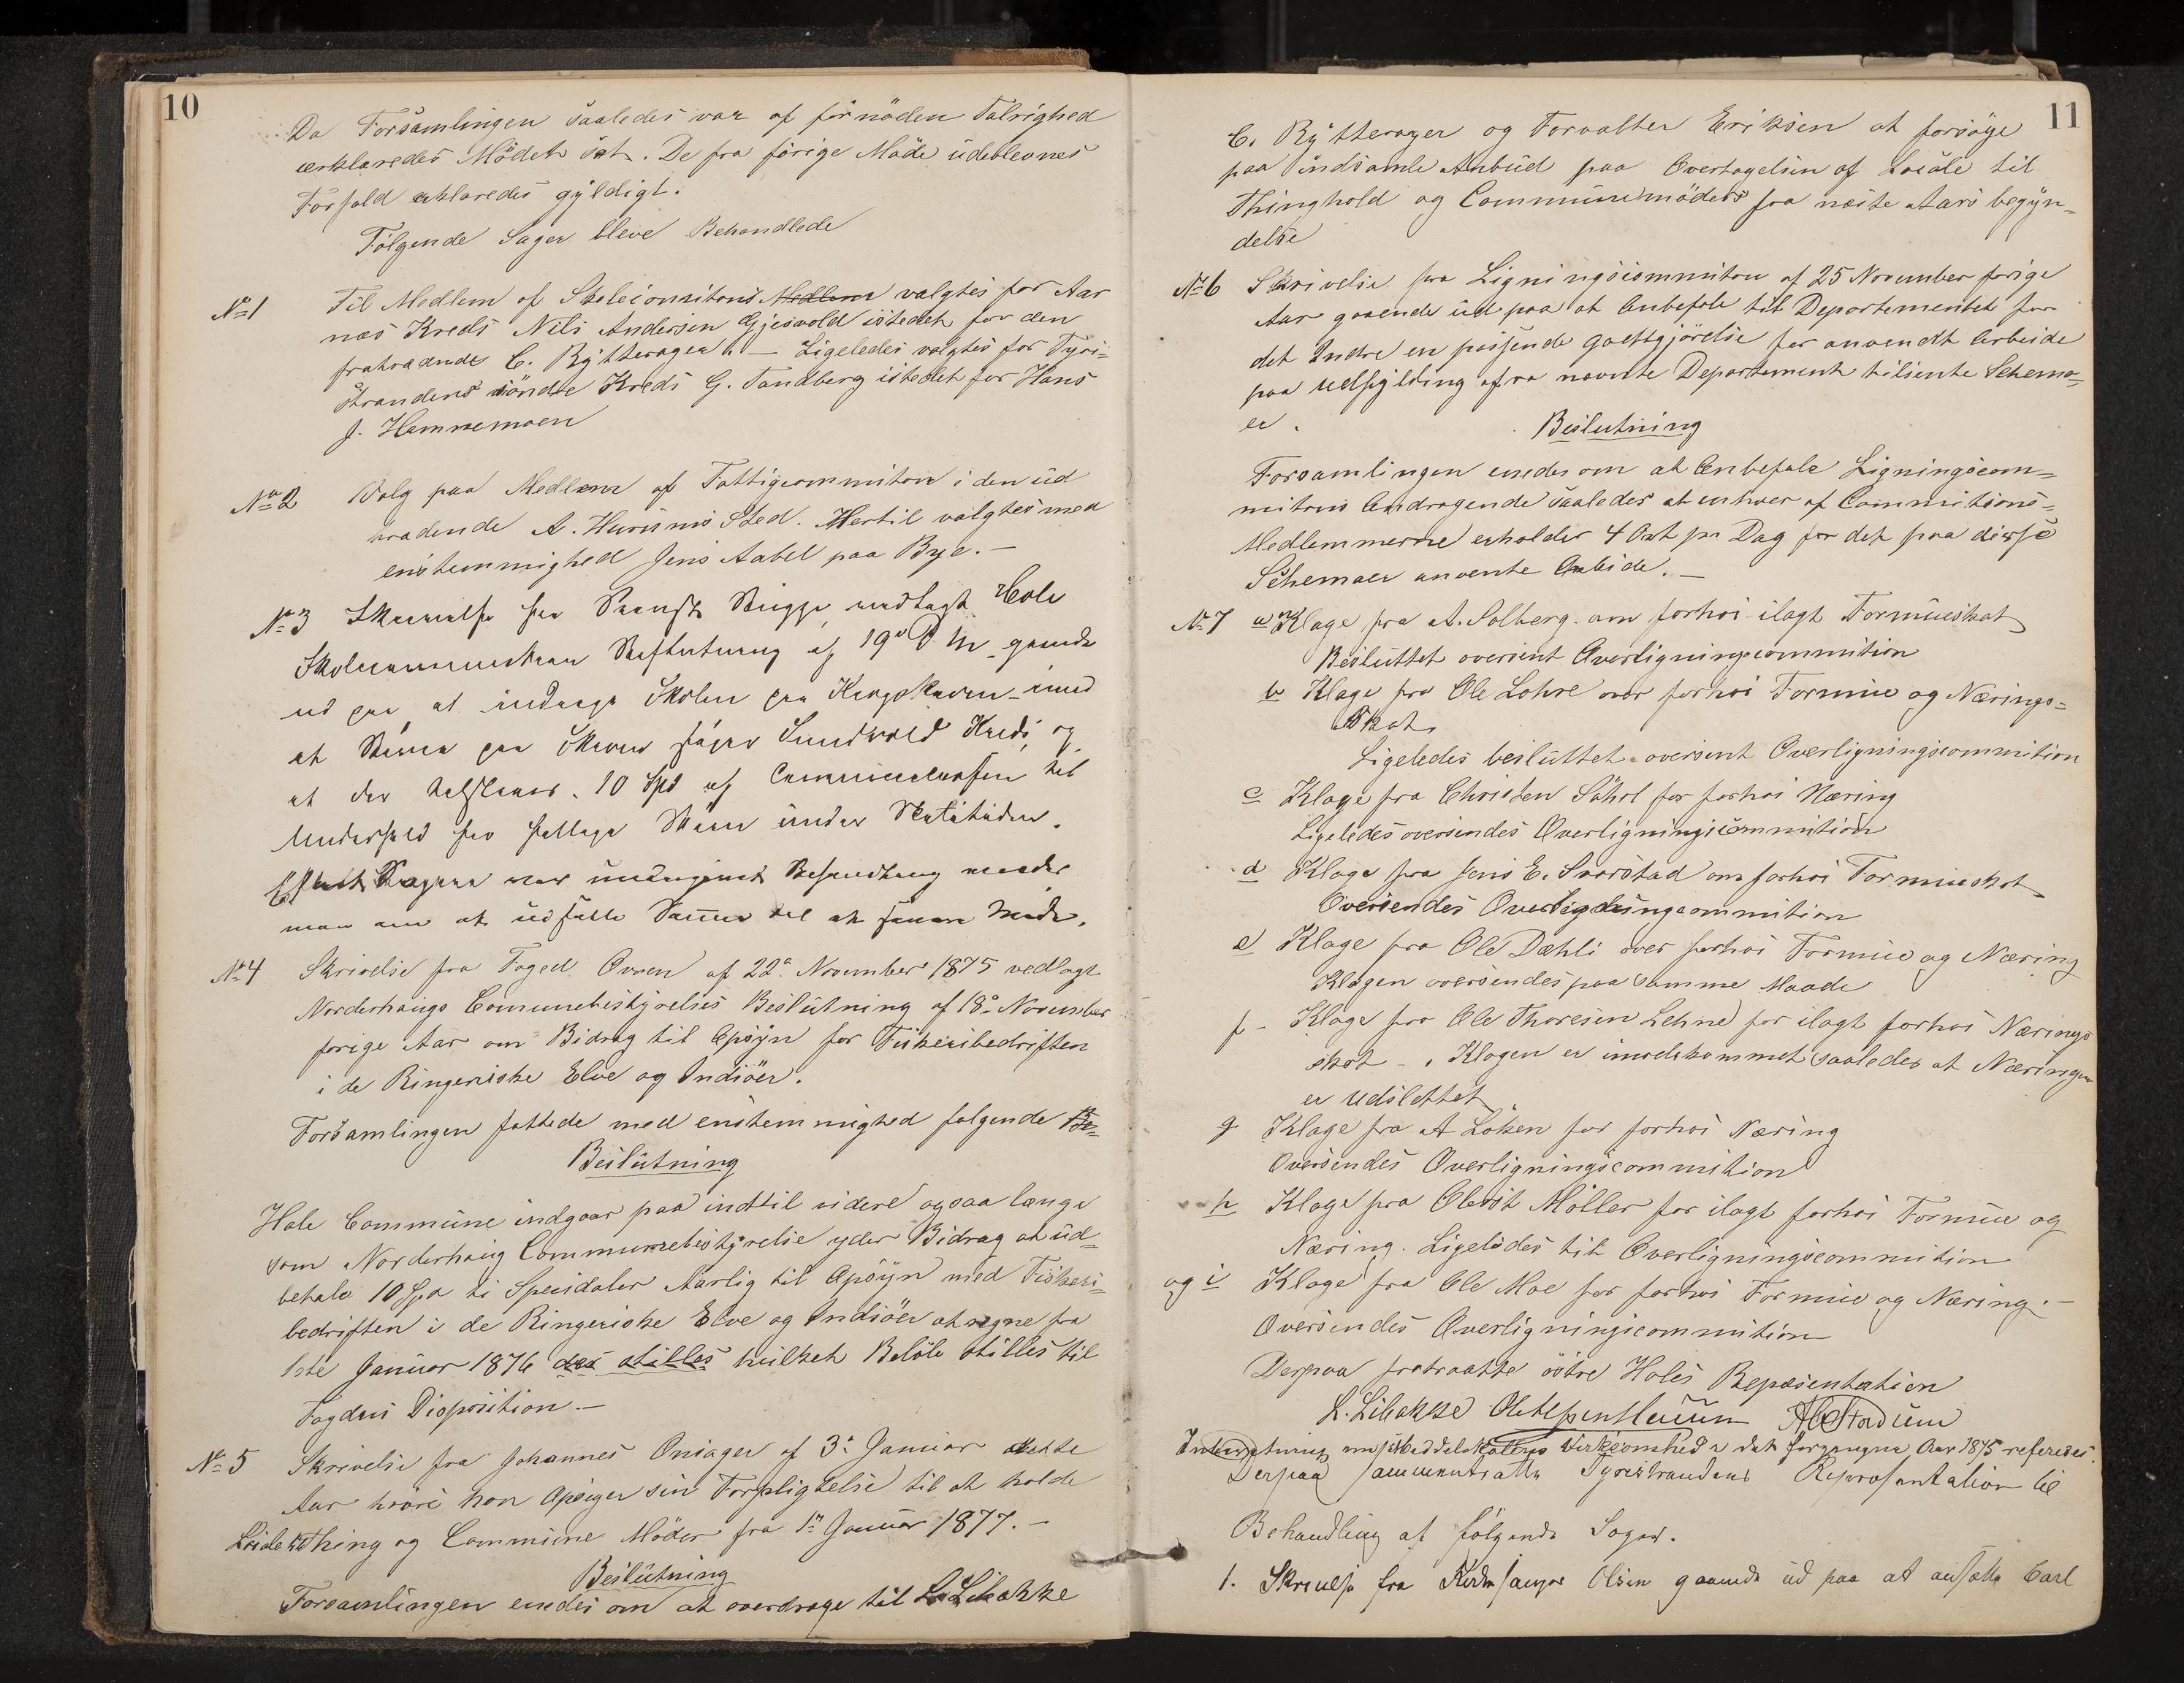 10
Da Forsamlingen saaledes var af fornöden Talrighed
erklæredes Mödet sat. De fra forige Möde udeblevnes
Forfald erklæredes gyldigt.
Fölgende Sager bleve Behandlede
No 1 Til Medlem af Skolecomitens Medlem valgtes for Aar
næs Kreds Nils Andersen Gjesvold istedet for den
fratrædende C. Rytterager. — Ligeledes valgtes for Tyri-
strandens söndre Kreds G. Tandberg istedet for Hans
J. Hammemoen
No 2 Valg paa Medlem af Fattigcommition i den ud
trædende A. Hurums Sted. Hertil valgtes med
enstemmighed Jens Aabel paa Bye. —
No 3 Skrivelse fra Provst Brügge, vedlagt Hole
Skolecommissions Beslutning af 19de D.M. gaaende
ud paa at inddrage Skolen paa Krogskoven imod
at Börnene paa Skoven söger Sundvold Kreds og
at der tilstaaes 10 Spd af Communekassen til
Underhold for fattige Börn under Skoletiden.
Efterat Sagen var undergivet Behandling enedes
man om at udsætte Samme til et senere Möde.
No 4 Skrivelse fra Foged Oven af 22de November 1875 vedlagt
Norderhaugs Communebestyrelses Beslutning af 18de November
forige Aar om Bidrag til Opsyn for Fiskeribedriften
i de Ringeriske Elve og Indsöer.
Forsamlingen fattede med enstemmighed folgende Be-
Beslutning
Hole Commune indgaar paa indtil videre og saa længe
som Norderhaug Communebestyrelse yder Bidrag at ud-
betale 10 Spd ti Speciedaler Aarlig til Opsyn med Fiskeri-
bedriften i de Ringeriske Elve og Indsöer at regne fra
1ste Januar 1876 des stilles hvilket Belöb stilles til
Fogdens Disposition. —
No 5 Skrivelse fra Johannes Onsager af 3de Januar dette
Aar hvori han Opsiger sin Forpligtelse til at holde
Locale til Thing og Commune Möder fra 1ste Januar 1877. —
Beslutning
Forsamlingen enedes om at overdrage til L. Libakke
11
C. Rytterager og Forvalter Eriksen at forsöge
paa indsamle Anbud paa Overtagelsen af Locale til
Thinghold og Communemöders fra næste Aars begyn-
delse
No 6 Skrivelse fra Ligningscommition af 25 November forige
Aar gaaende ud paa at Anbefale til Departementet for
det Indre en passende godtgjörelse for anvendt Arbeide
paa Udfylding af fra nævnte Departement tilsente Schema-
er.
Beslutning
Forsamlingen enedes om at Anbefale Ligningscom-
mitens Andragende saaledes at enhver af Commitions-
Medlemmerne erholder 4 Ort pr Dag for det paa disse
Schemaer anvente Arbeide. —
No 7 a Klage fra A. Solberg om forhöi ilagt Formueskat
Besluttet oversent Overligningscommition
b Klage fra Ole Lohre over forhöi Formue og Nærings-
Skat
Ligeledes besluttet oversent Overligningscommition
c Klage fra Christen Söhol for forhöi Næring
Ligeledes oversendes Overligningscommition
d Klage fra Jens E. Svarstad om forhöi Formueskat
Oversendes Overligningcommition
e Klage fra Ole Dæhli over forhöi Formue og Næring
Klagen oversendes paa samme Maade
f - Klage fra Ole Thoresen Lehne for ilagt forhöi Nærings
skat - . Klagen er imödekommet saaledes at Næringen
er udslettet
g Klage fra A Löken for forhöi Næring
Oversendes Overligningscommition
h Klage fra Möller for ilagt forhöi Formue og
Næring. Ligeledes til Overligningscommition
og i Klage fra Ole Moe for forhöi Formue og Næring. —
Oversendes Overligningscommition
Derpaa fratraatte östre Holes Repæsentation
L. Libakke
Virksomhed i det forgangne Aar 1875 referedes.
Derpaa sammentratte Tyristrandens Repræsentation til
Behandling af fölgende Sager.
1. Skrivelse fra Kirkesanger Olsen gaaende ud paa at ansætte Carl